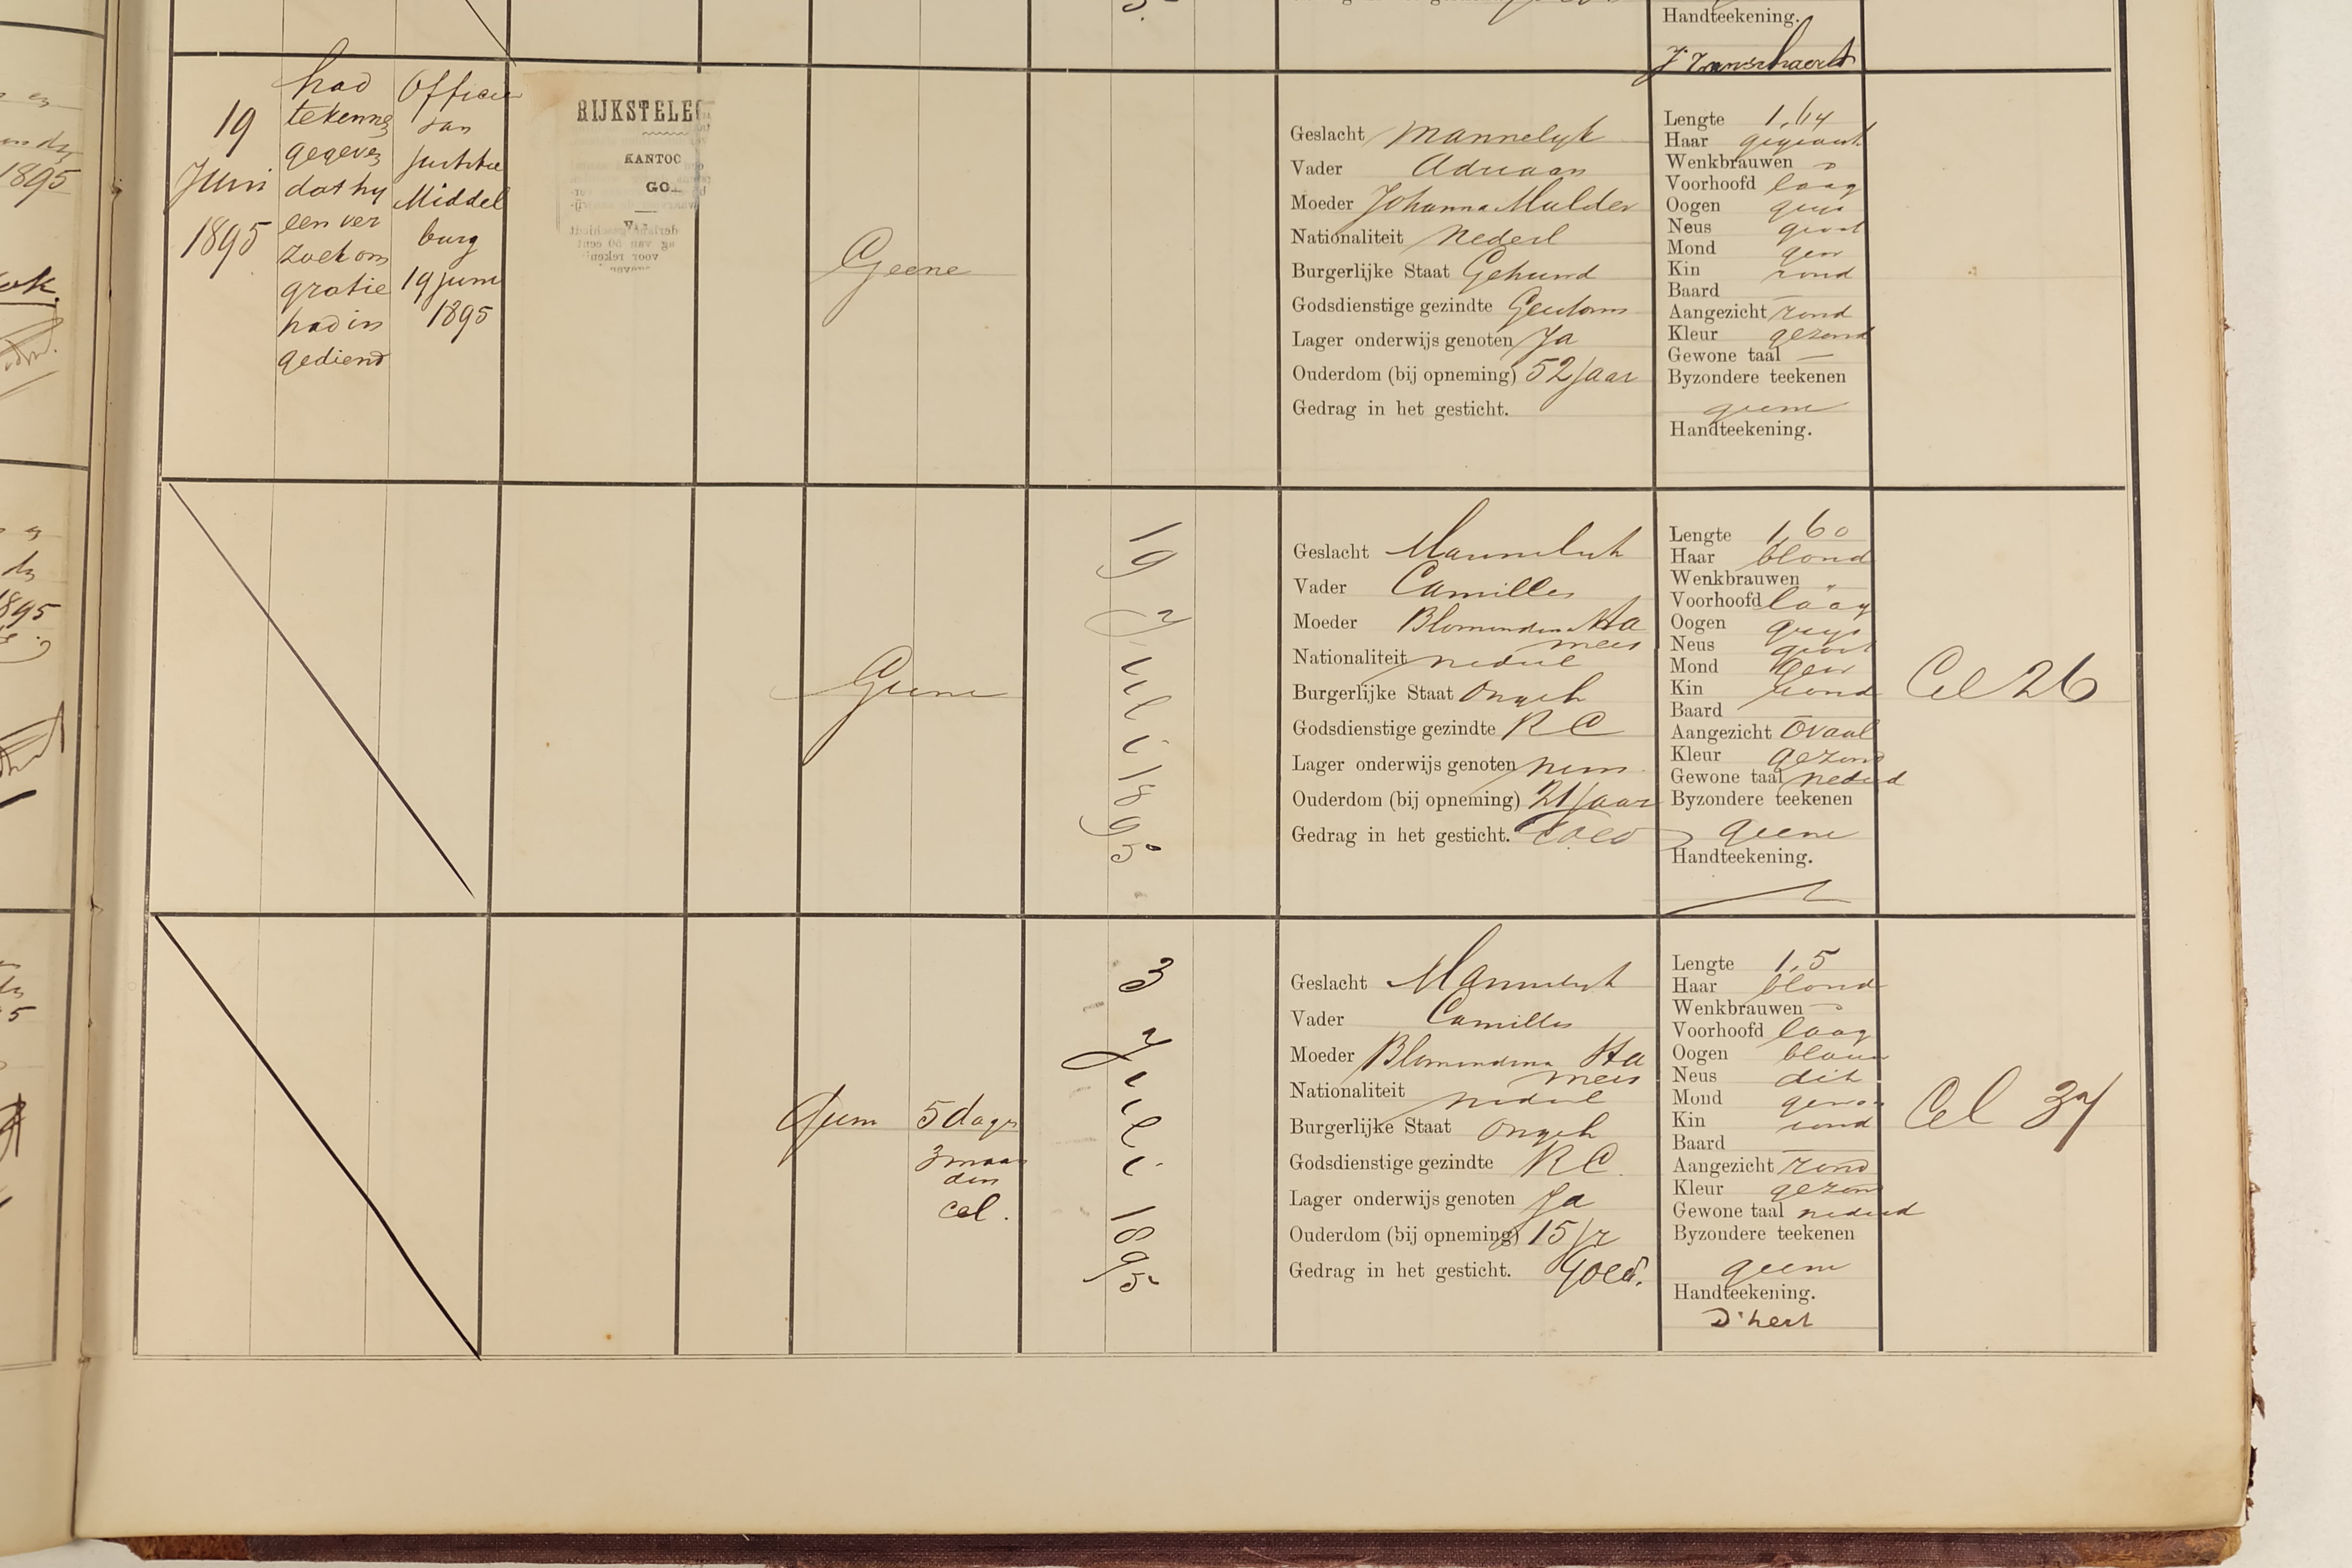 Handteekening.
19
Juni
1895
had
te kennen
gegeven
dat hij
een ver
zoek om
gratie
had in
gediend
Officier
van
Justitie
Middel
burg
19 juni
1895
RIJKSTELEG
KANTOO
GO
Geene
Geslacht Mannelijk
Vader Adriaan
Moeder Johanna Mulder
Nationaliteit Nederl
Burgerlijke Staat Gehuwd
Godsdienstige gezindte
Lager onderwijs genoten Ja
Ouderdom (bij opneming) 52 Jaar
Gedrag in het gesticht.
Lengte 1,64
Haar
Wenkbrauwen
Voorhoofd laag
Oogen grijs
Neus groot
Mond gew
Kin rond
Baard —
Aangezicht rond
Kleur gezond
Gewone taal —
Byzondere teekenen
geene
Handteekening.
Geene
19 Juli 1895
Geslacht Mannelijk
Vader Camilles
Moeder Blomendina Ha
mers
Nationaliteit nederl
Burgerlijke Staat Ongeh
Godsdienstige gezindte R C
Lager onderwijs genoten neen
Ouderdom (bij opneming) 21 Jaar
Gedrag in het gesticht. Goed
Lengte 1,60
Haar blond
Wenkbrauwen "
Voorhoofd laag
Oogen grijs
Neus groot
Mond gew
Kin rond
Baard —
Aangezicht Ovaal
Kleur gezond
Gewone taal nederd
Byzondere teekenen
geene
Handteekening.
Cel 26
5 dagen
3 maan
den
cel.
3 Juli 1895
Geslacht Mannelijk
Vader Camilles
Moeder Blomendina Ha
mers
Nationaliteit nederl
Burgerlijke Staat Ongeh
Godsdienstige gezindte R C.
Lager onderwijs genoten Ja
Ouderdom (bij opneming) 15 jr
Gedrag in het gesticht. Goed.
Lengte 1,5
Haar blond
Wenkbrauwen
Voorhoofd laag
Oogen blauw
Neus dik
Mond gewoon
Kin rond
Baard —
Aangezicht rond
Kleur gezond
Gewone taal nederd
Byzondere teekenen
geene
Handteekening.
D'hert
Cel 37